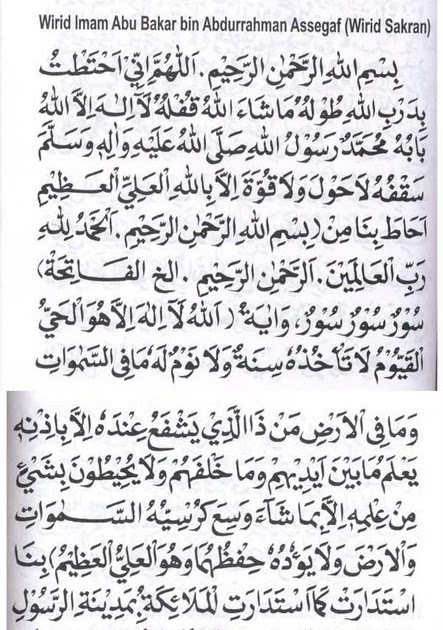 Wirid Imam Abu Bakar bin Abdurrahman Assegaf (Wirid Sakran)
بِسْمِ اللهِ الرَّحْمٰنِ الرَّحِيْمِ . اَللّٰهُمَّ اِنِّيْ احْتَطْتُ
بِدَرْبِ اللهِ طُوْلُهُ مَاشَاءَ اللهُ قُفْلُهُ لَآ اِلٰهَ اِلَّا اللهُ
بَابُهُ مُحَمَّدٌ رَسُوْلُ اللهِ صَلَّى اللهُ عَلَيْهِ وَاٰلِهِ وَسَلَّمَ
سَقْفُهُ لَاحَوْلَ وَلَا قُوَّةَ اِلَّا بِاللهِ الْعَلِيِّ الْعَظِيْمِ
اَحَاطَ بِنَا مِنْ (بِسْمِ اللهِ الرَّحْمٰنِ الرَّحِيْمِ . اَلْحَمْدُ لِلّٰهِ
رَبِّ الْعَالَمِيْنَ . اَلرَّحْمٰنِ الرَّحِيْمِ . الخ الفَاتِحَة)
سُوْرٌ سُوْرٌ سُوْرٌ، وَاٰيَةُ (اَللهُ لَآ اِلٰهَ اِلَّا هُوَ الْحَيُّ
الْقَيُّوْمُ لَا تَأْخُذُهُ سِنَةٌ وَلَا نَوْمٌ لَهُ مَا فِى السَّمٰوَاتِ
وَمَا فِى الْاَرْضِ مَنْ ذَا الَّذِيْ يَشْفَعُ عِنْدَهُ اِلَّا بِاِذْنِهِ
يَعْلَمُ مَا بَيْنَ اَيْدِيْهِمْ وَمَا خَلْفَهُمْ وَلَا يُحِيْطُوْنَ بِشَيْءٍ
مِنْ عِلْمِهِ اِلَّا بِمَا شَآءَ وَسِعَ كُرْسِيُّهُ السَّمٰوَاتِ
وَالْاَرْضَ وَلَا يَؤُدُهُ حِفْظُهُمَا وَهُوَ الْعَلِيُّ الْعَظِيْمُ) بِنَا
اسْتَدَارَتْ كَمَا اسْتَدَارَتِ الْمَلَائِكَةُ بِمَدِيْنَةِ الرَّسُوْلِ